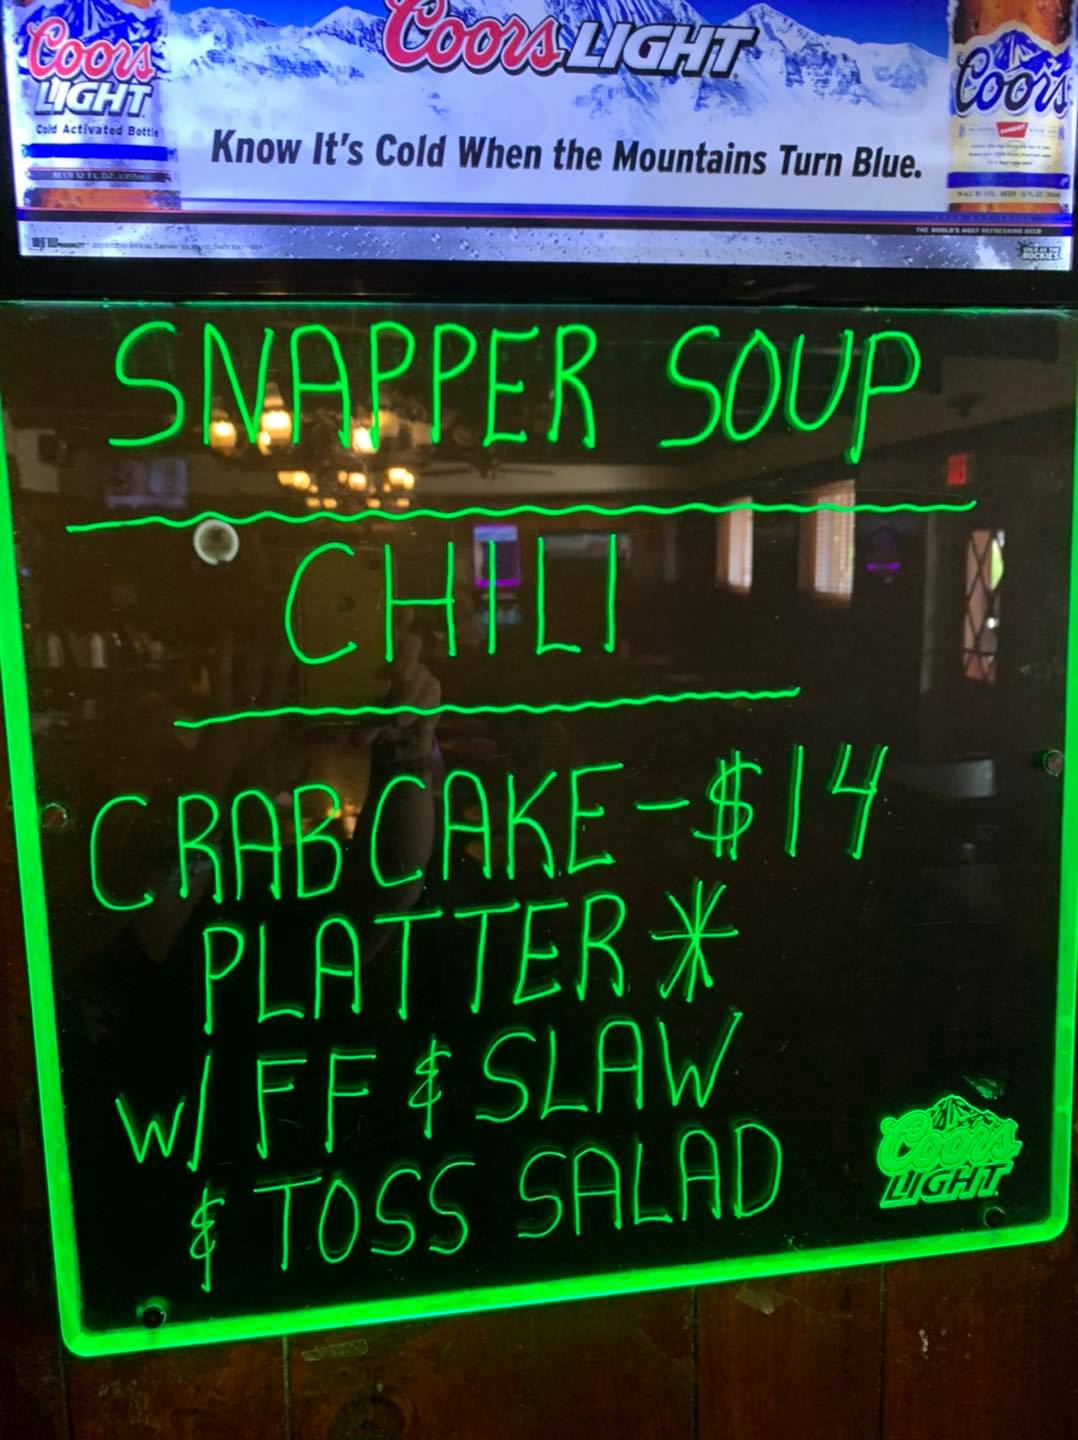 Coors LIGHT
Coors
LIGHT
Cold Activated Bottle
Coors
Know It's Cold When the Mountains Turn Blue.
THE WORLD'S MOST REFRESHING BEER
SNAPPER SOUP
CHILI
CRAB CAKE - $14
PLATTER *
W/ FF & SLAW
& TOSS SALAD
Coors
LIGHT